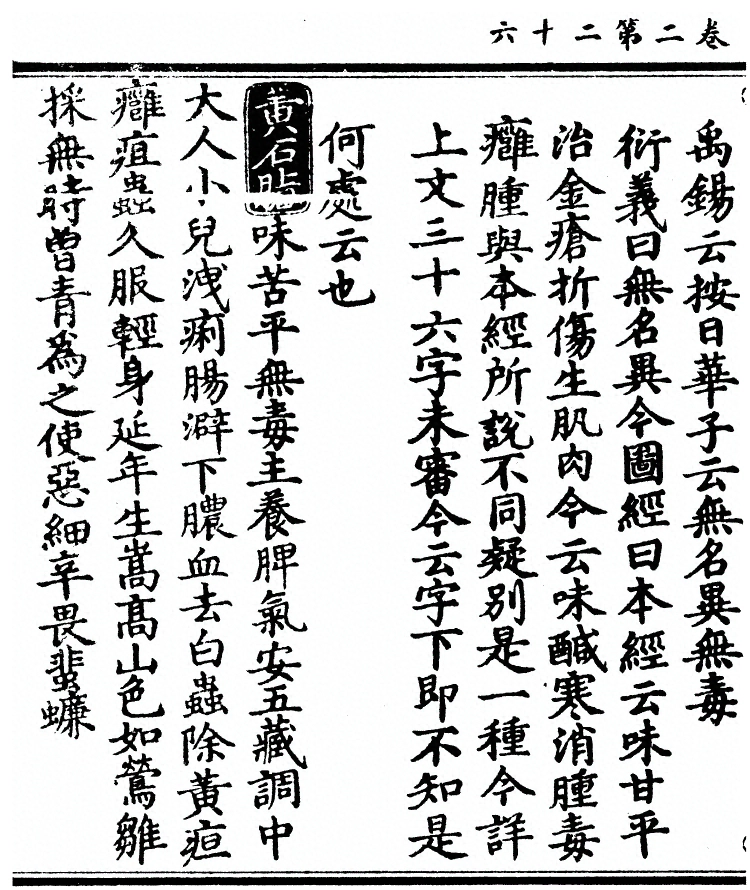 卷二第二十六
禹錫云按日華子云無名異無毒
衍義曰無名異今圖經曰本經云味甘平
治金瘡折傷生肌肉今云味醎寒消腫毒
癰腫與本經所說不同疑別是一種今詳
上文三十六字未審今云字下即不知是
何處云也
黃石脂味苦平無毒主養脾氣安五藏調中
大人小兒洩痢腸澼下膿血去白蟲除黃疸
癰疽蟲久服輕身延年生嵩高山色如鶯雛
採無時曾青為之使惡細辛畏蜚蠊